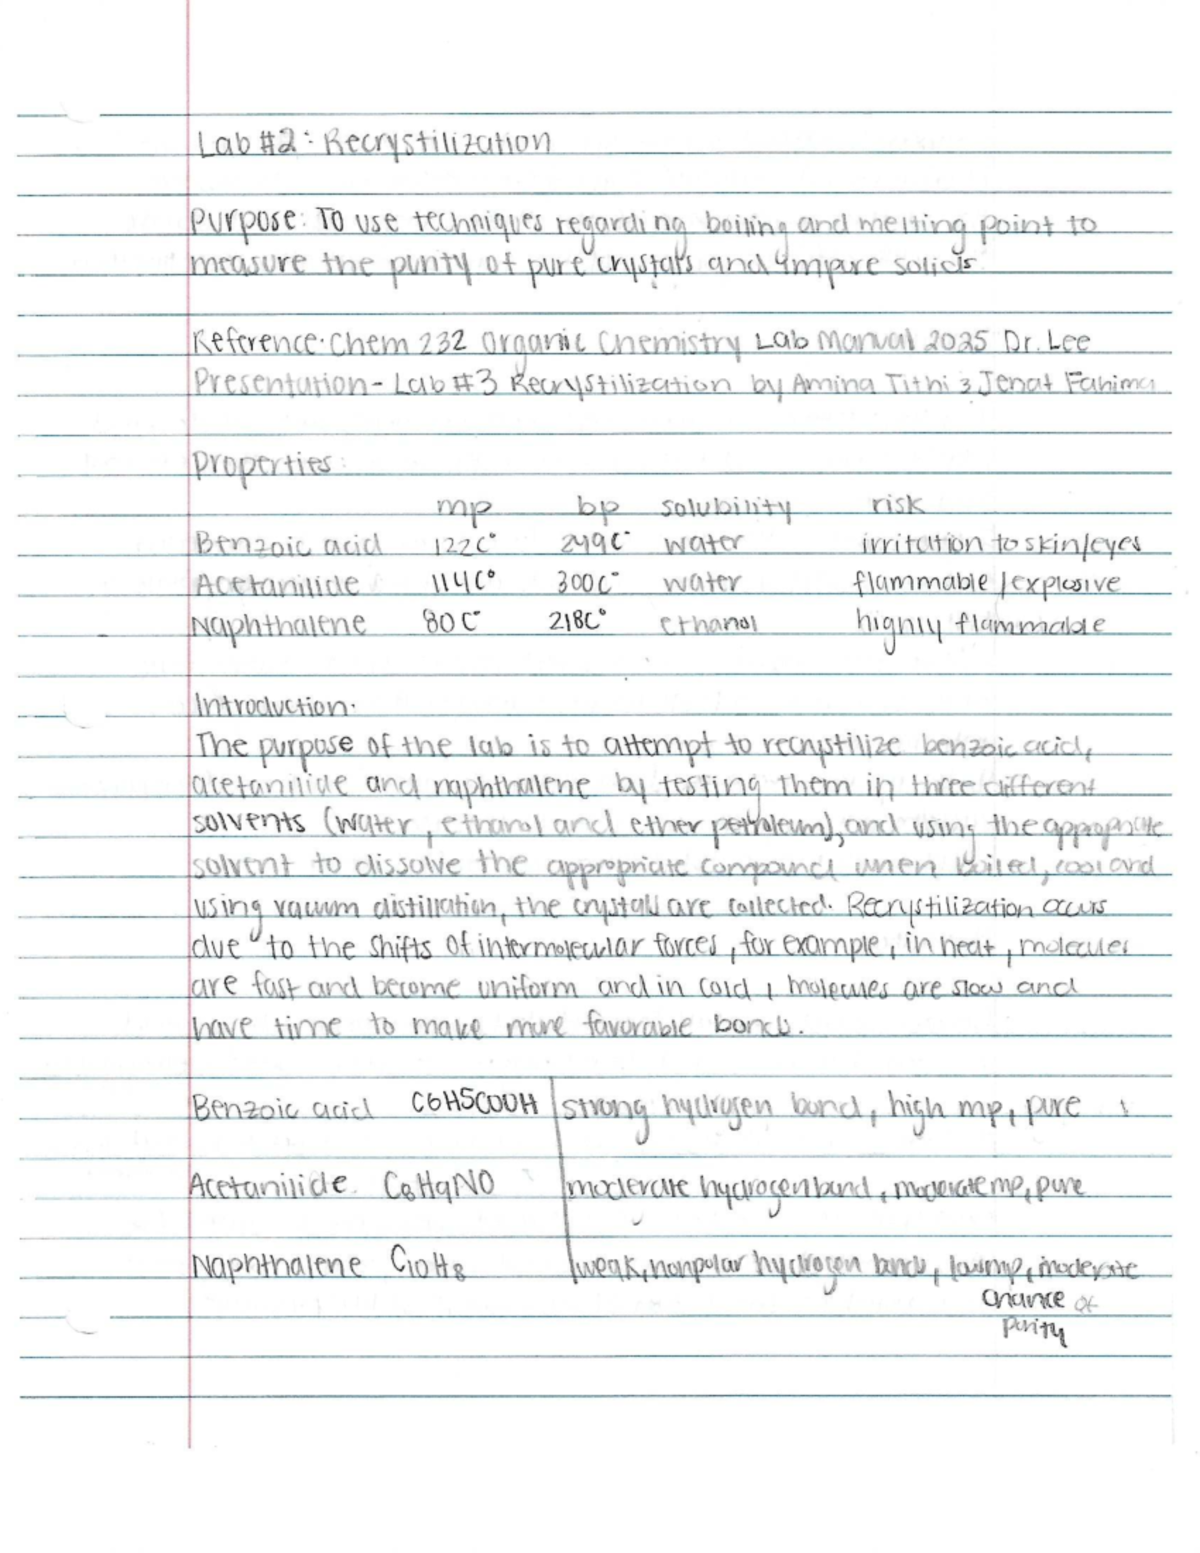 Lab #2: Recrystilization
Purpose: To use techniques regarding boiling and melting point to
measure the purity of pure crystals and impure solids
Reference: Chem 232 Organic Chemistry Lab Manual 2025 Dr. Lee
Presentation - Lab #3 Recrystilization by Amina Tithi & Jenat Fahima
Properties:
mp bp solubility risk
Benzoic acid 122C° 249C° water irritation to skin/eyes
Acetanilide 114C° 300C° water flammable/explosive
Naphthalene 80C° 218C° ethanol highly flammable
Introduction:
The purpose of the lab is to attempt to recrystilize benzoic acid,
acetanilide and naphthalene by testing them in three different
solvents (water, ethanol and ether petroleum), and using the appropriate
solvent to dissolve the appropriate compound when boiled, cool and
using vacuum distillation, the crystals are collected. Recrystilization occurs
due to the shifts of intermolecular forces, for example, in heat, molecules
are fast and become uniform and in cold, molecules are slow and
have time to make more favorable bonds.
Benzoic acid C6H5COOH strong hydrogen bond, high mp, pure
Acetanilide C8H9NO moderate hydrogen bond, moderate mp, pure
Naphthalene C10H8 weak, nonpolar hydrogen bonds, low mp, moderate
chance of
purity